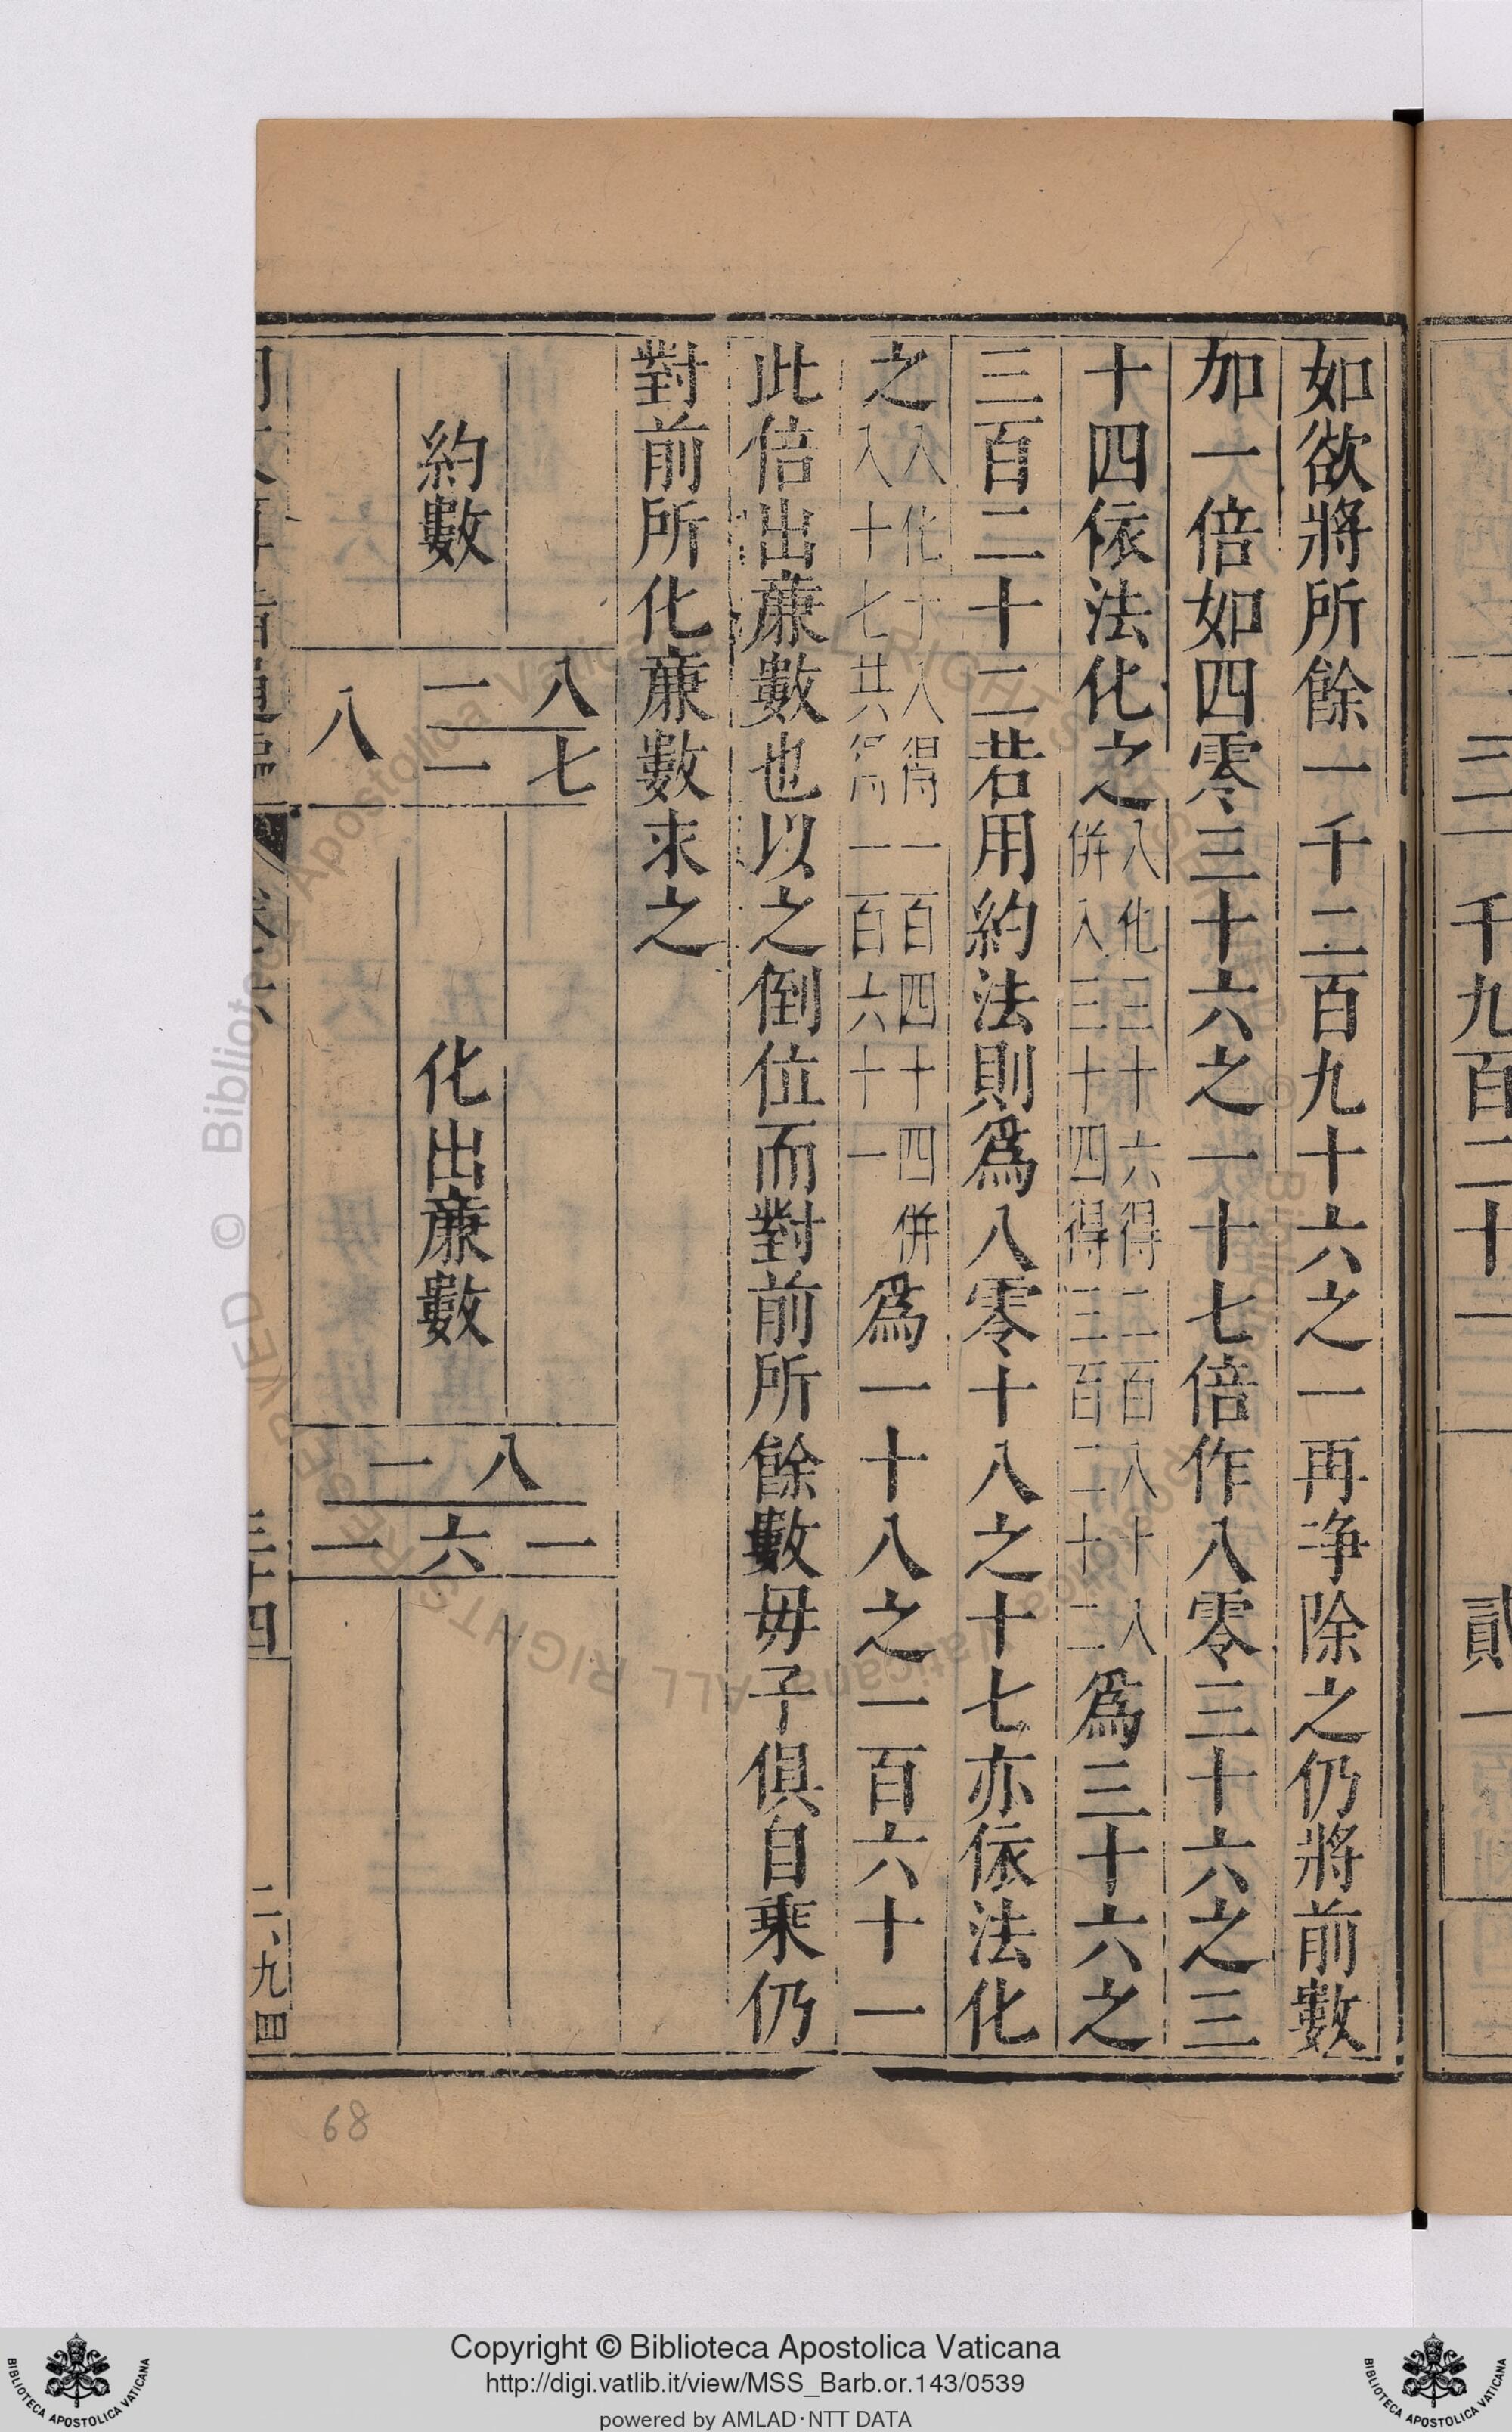 千九百二十一
貳一
如欲將所餘一千二百九十六之一再净除之仍將前數
加一倍如四零三十六之一十七倍作八零三十六之三
十四依法化之八化三十六得二百八十八
併入三十四得三百二十二爲三十六之
三百二十二若用約法則爲八零十八之十七亦依法化
之八化十八得一百四十四併
入十七共得一百六十一爲一十八之一百六十一
此倍出廉數也以之倒位而對前所餘數毋子俱自乘仍
對前所化廉數求之
約數
八 一 八
七 一
化出廉數
八 一
一 六 一
三十四
二、九四
68
© Biblioteca Apostolica Vaticana ALL RIGHTS RESERVED
Copyright © Biblioteca Apostolica Vaticana
http://digi.vatlib.it/view/MSS_Barb.or.143/0539
powered by AMLAD·NTT DATA
BIBLIOTECA APOSTOLICA VATICANA
BIBLIOTECA APOSTOLICA VATICANA